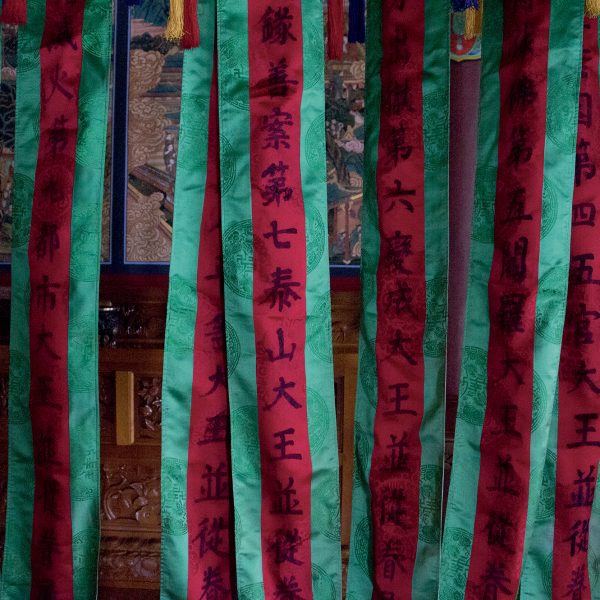 第四五官大王並從
第五閻羅大王並從眷
第六變成大王並從眷
錄善案第七泰山大王並從眷
大王並從眷
火第九都市大王並從眷